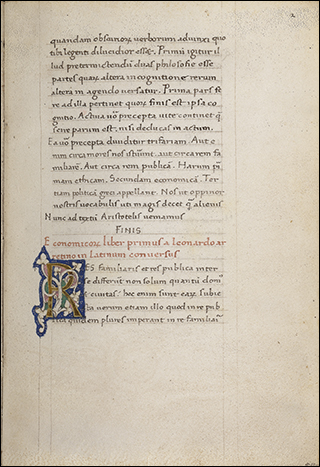 quandam obscurior verborum adduxi quo
tibi legenti dilucidior esset. Primũ igitur il
lud pretermittendũ duas philosofie esse
partes quarũ altera in cognitione rerum
altera in agendo versatur. Prima pars fe
re ad illa pertinet quorũ finis est ipsa co
gnitio. Activa uõ precepta vite continet q̃
sene parum est, nisi deducas in action̄.
Ea uõ precepta dividitur trifariam. Aut e
nim circa mores nos istituũt, aut circa rem fa
miliarē. Aut circa rem publicã. Harum pri
mam ethicam. Secundam economicã. Ter
tiam politicã greci appellant. Nos ut oppinor
nostris vocabulis uti magis decet q̃ alienis
Nunc ad textũ Aristotelis veniamus
FINIS
Economicorũ liber primus a Leonardo ar
retino in Latinum conversus
RES familiaris et res publica inter
se differũt non solum quantũ dom᷒
et civitas hec enim sunt earũ subie
cta verum etiam illo quod in re pub
lica quidem plures imperant in re familiari